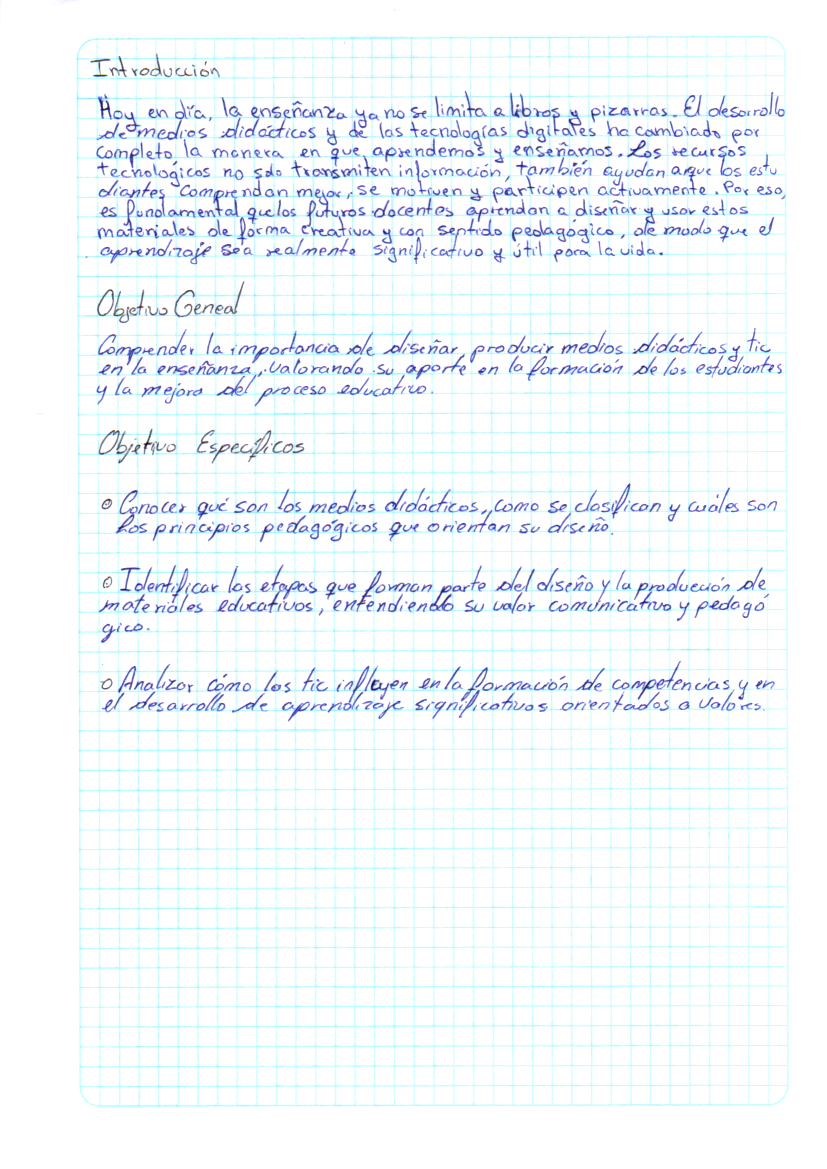 Introducción
Hoy en día, la enseñanza ya no se limita a libros y pizarras. El desarrollo
de medios didácticos y de las tecnologías digitales ha cambiado por
completo la manera en que aprendemos y enseñamos. Los recursos
tecnológicos no solo transmiten información, también ayudan a que los estu
diantes comprendan mejor, se motiven y participen activamente. Por eso,
es fundamental que los futuros docentes aprendan a diseñar y usar estos
materiales de forma creativa y con sentido pedagógico, de modo que el
aprendizaje sea realmente significativo y útil para la vida.
Objetivo Geneal
Comprender la importancia de diseñar, producir medios didácticos y tic
en la enseñanza, valorando su aporte en la formación de los estudiantes
y la mejora del proceso educativo.
Objetivo Específicos
Conocer qué son los medios didácticos, como se clasifican y cuáles son
los principios pedagógicos que orientan su diseño.
Identificar las etapas que forman parte del diseño y la producción de
materiales educativos, entendiendo su valor comunicativo y pedagó
gico.
Analizar cómo las tic influyen en la formación de competencias y en
el desarrollo de aprendizaje significativos orientados a valores.